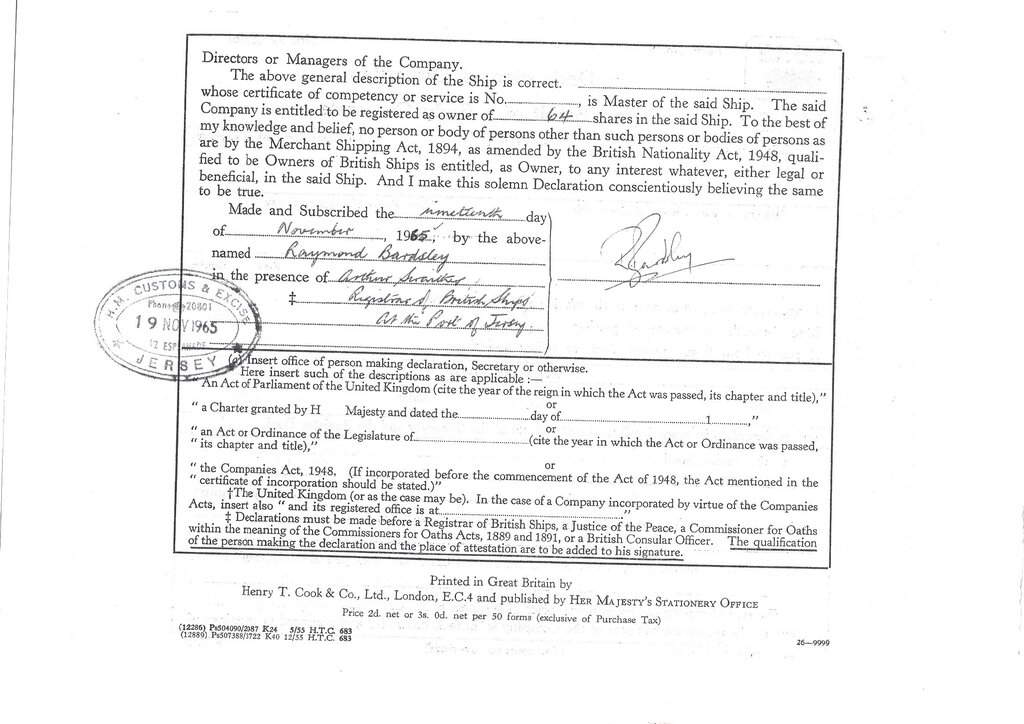 Directors or Managers of the Company.
The above general description of the Ship is correct.
whose certificate of competency or service is No. , is Master of the said Ship. The said
Company is entitled to be registered as owner of 64 shares in the said Ship. To the best of
my knowledge and belief, no person or body of persons other than such persons or bodies of persons as
are by the Merchant Shipping Act, 1894, as amended by the British Nationality Act, 1948, quali-
fied to be Owners of British Ships is entitled, as Owner, to any interest whatever, either legal or
beneficial, in the said Ship. And I make this solemn Declaration conscientiously believing the same
to be true.
Made and Subscribed the nineteenth day
of November , 1965, by the above-
named Raymond Bardsley
R Bardsley
in the presence of Arthur
‡ Registrar of British Ships
At the Port of Jersey.
H.M. CUSTOMS & EXCISE
Phone 20801
19 NOV 1965
12 ESPLANADE
JERSEY
(a) Insert office of person making declaration, Secretary or otherwise.
Here insert such of the descriptions as are applicable :—
"An Act of Parliament of the United Kingdom (cite the year of the reign in which the Act was passed, its chapter and title),"
or
" a Charter granted by H Majesty and dated the day of 1 ,"
or
" an Act or Ordinance of the Legislature of (cite the year in which the Act or Ordinance was passed,
" its chapter and title),"
or
" the Companies Act, 1948. (If incorporated before the commencement of the Act of 1948, the Act mentioned in the
" certificate of incorporation should be stated.)"
†The United Kingdom (or as the case may be). In the case of a Company incorporated by virtue of the Companies
Acts, insert also " and its registered office is at ."
‡ Declarations must be made before a Registrar of British Ships, a Justice of the Peace, a Commissioner for Oaths
within the meaning of the Commissioners for Oaths Acts, 1889 and 1891, or a British Consular Officer. The qualification
of the person making the declaration and the place of attestation are to be added to his signature.
Printed in Great Britain by
Henry T. Cook & Co., Ltd., London, E.C.4 and published by HER MAJESTY'S STATIONERY OFFICE
Price 2d. net or 3s. 0d. net per 50 forms (exclusive of Purchase Tax)
(12286) Ps504090/2087 K24 5/55 H.T.C. 683
(12889) Ps507388/1722 K40 12/55 H.T.C. 683
26—9999